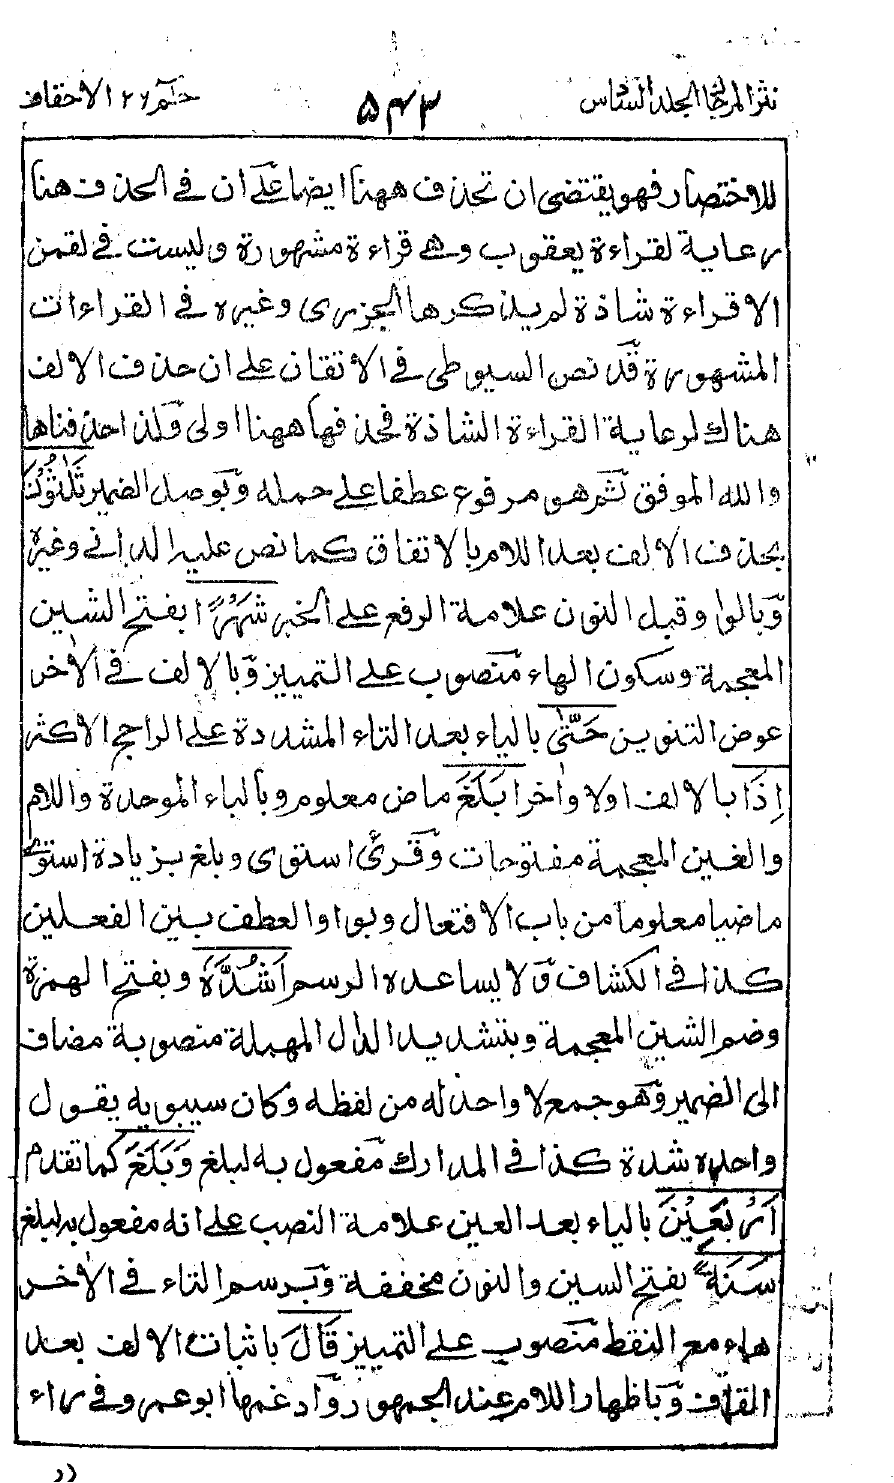 نثر المرجان المجلد السادس ٥٤٣ حٰم ٢٦ الاحقاف
للاختصار فهو يقتضى ان تحذف ههنا ايضا علىٓ ان فى الحذف هنا
رعاية لقراءة يعقوب وهى قراءة مشهورة وليست فى لقمن
الا قراءة شاذة لم يذكرها الجزرى وغيره فى القراءات
المشهورة قد نص السيوطى فى الاتقان على ان حذف الالف
هناك لرعاية القراءة الشاذة فحذفها ههنا اولى ولذا حذفناها
والله الموفق ثم هو مرفوع عطفا على حمله وبوصل الضمير ثَلٰثُوْنَ
بحذف الالف بعد اللام بالاتفاق كما نص عليه الدانى وغيره
وبالواو قبل النون علامة الرفع على الخبر شَهْرًا بفتح الشين
المعجمة وسكون الهاء منصوب على التمييز وبالالف فى الاخر
عوض التنوين حَتّٰى بالياء بعد التاء المشددة على الراجح الاكثر
اِذَا بالالف اولا واخرا بَلَغَ ماض معلوم وبالباء الموحدة واللام
والغين المعجمة مفتوحات وقرئ استوى وبلغ بزيادة استوى
ماضيا معلوما من باب الافتعال وبواو العطف بين الفعلين
كذا فى الكشاف ولا يساعده الرسم اَشُدَّهٗ وبفتح الهمزة
وضم الشين المعجمة وبتشديد الدال المهملة منصوبة مضاف
الى الضمير وهو جمع لا واحد له من لفظه وكان سيبويه يقول
واحده شدة كذا فى المدارك مفعول به لبلغ وَبَلَغَ كما تقدم
اَرْبَعِيْنَ بالياء بعد العين علامة النصب على انه مفعول به لبلغ
سَنَةً بفتح السين والنون مخففة وبرسم التاء فى الاخر
هاء مع النقط منصوب على التمييز قَالَ باثبات الالف بعد
القاف وباظهار اللام عند الجمهور وادغمها ابو عمرو فى راء